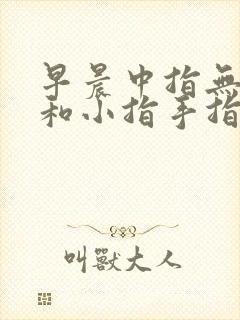 早晨中指無
和小指手指
叫獸大人